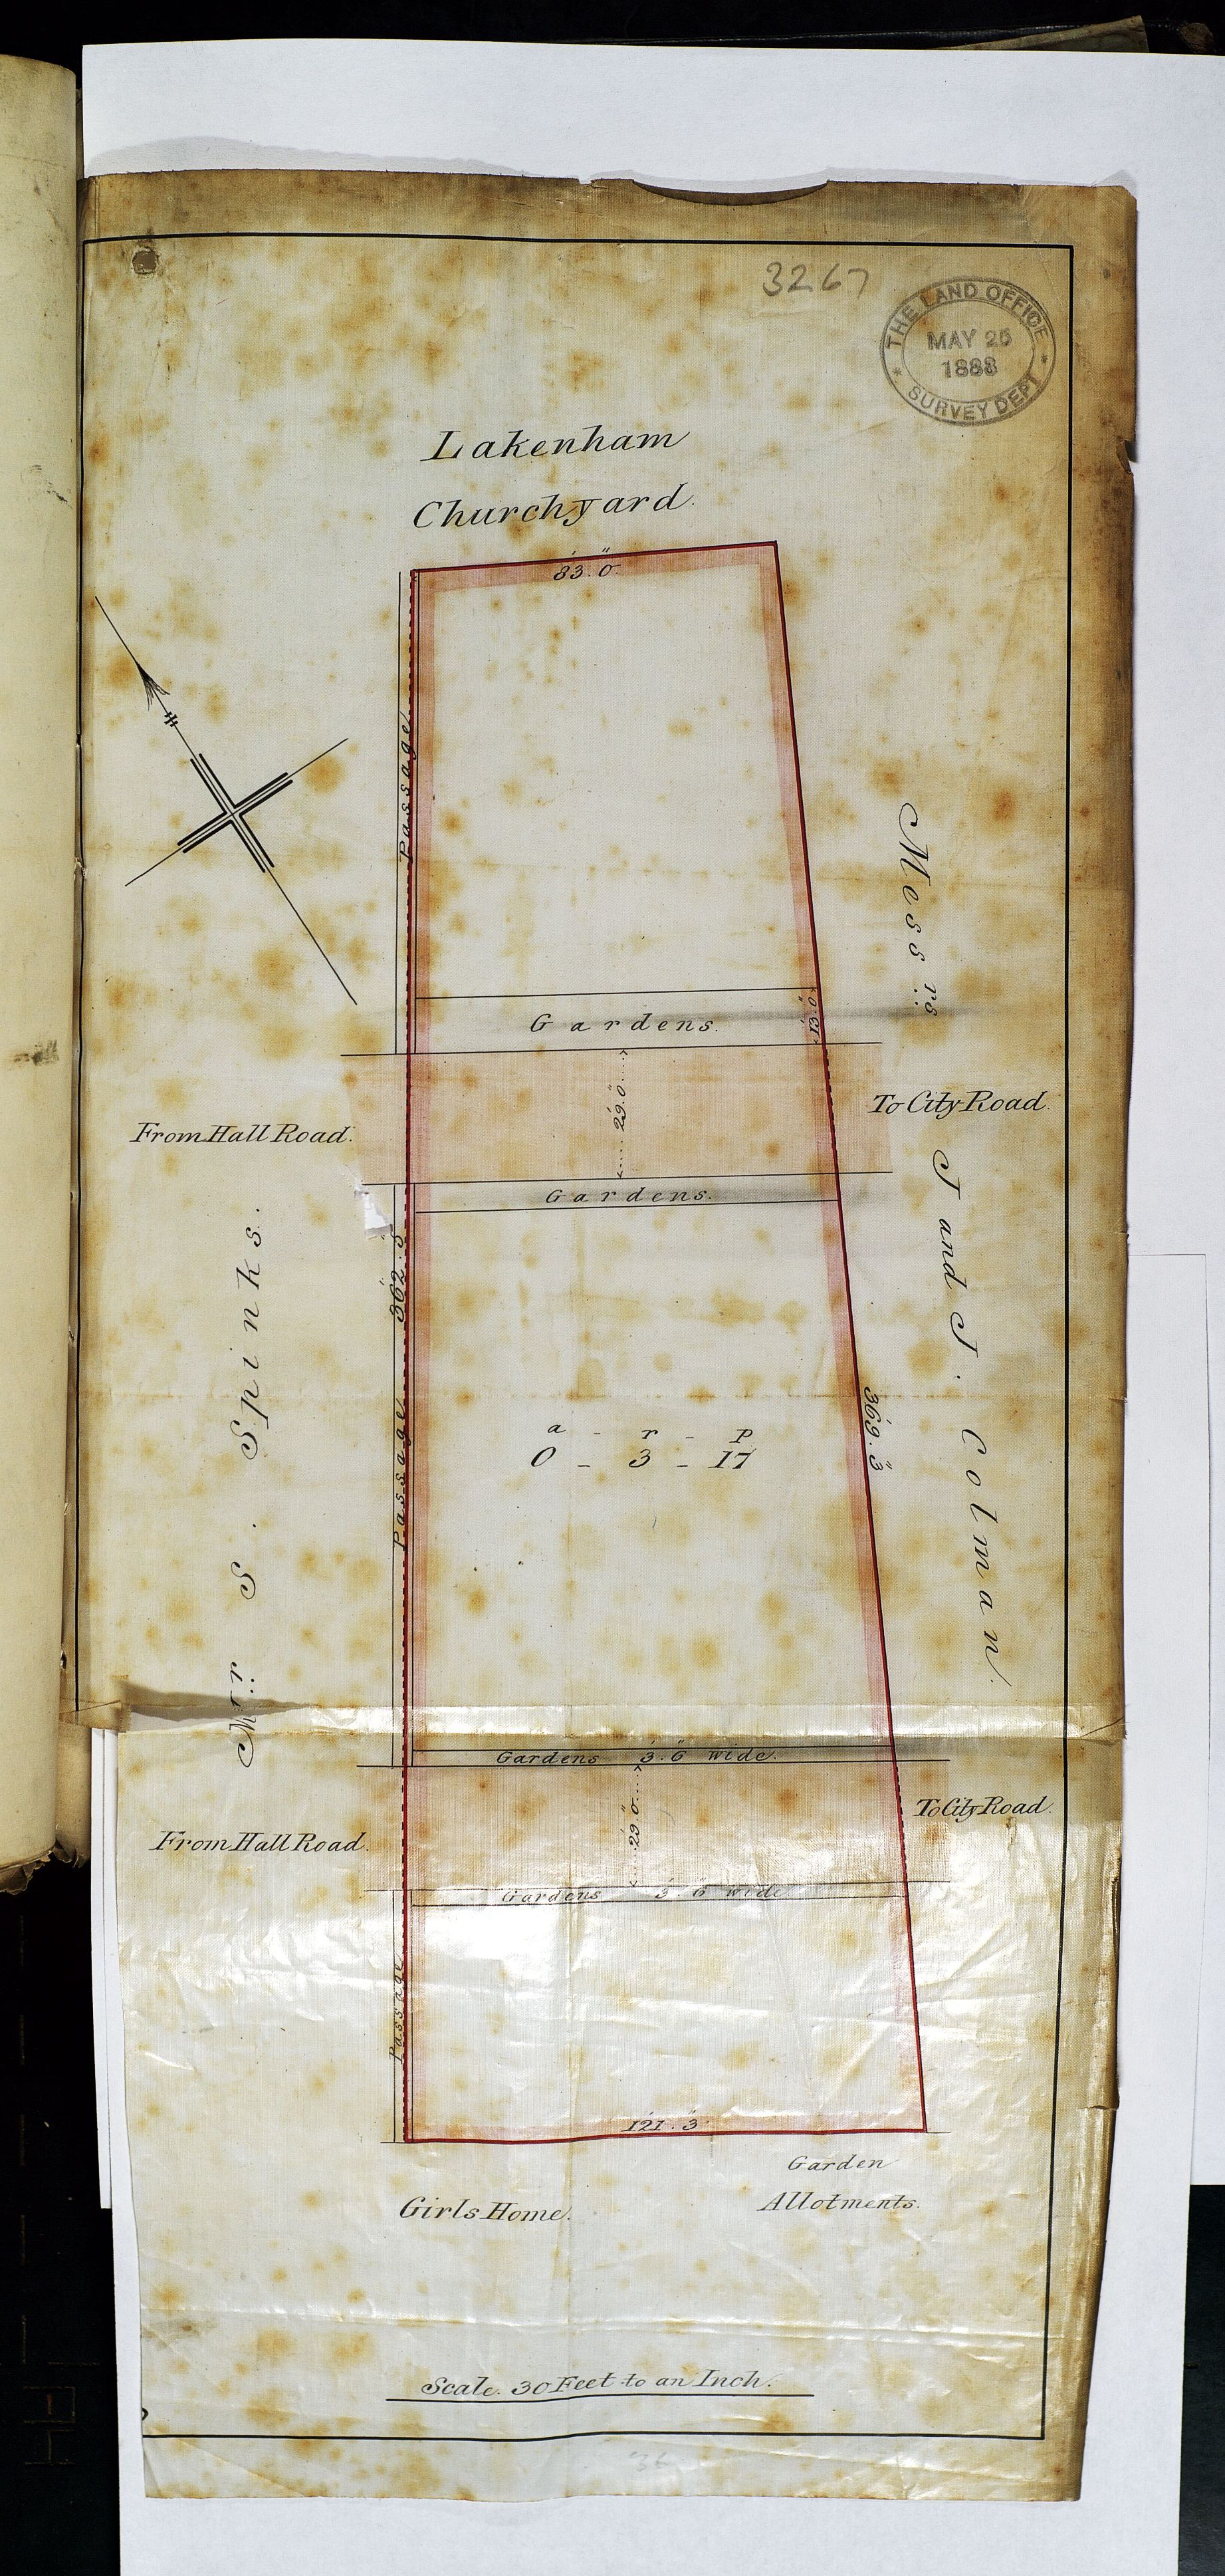 3267
THE LAND OFFICE
MAY 25
1888
SURVEY DEPT
Lakenham
Churchyard.
83'.0"
Passage
Mess.rs J and J. Colman.
Gardens.
13'.0"
29'.0"
To City Road.
From Hall Road.
Gardens.
362'.5"
Mr. S. Spinks.
369'.3"
Passage
a - r - p
0 - 3 - 17
Gardens 3'.6" wide.
29'.0"
To City Road.
From Hall Road.
Gardens 3'.6" wide
Passage
121'.3"
Garden
Allotments.
Girls Home.
Scale. 30 Feet to an Inch.
36